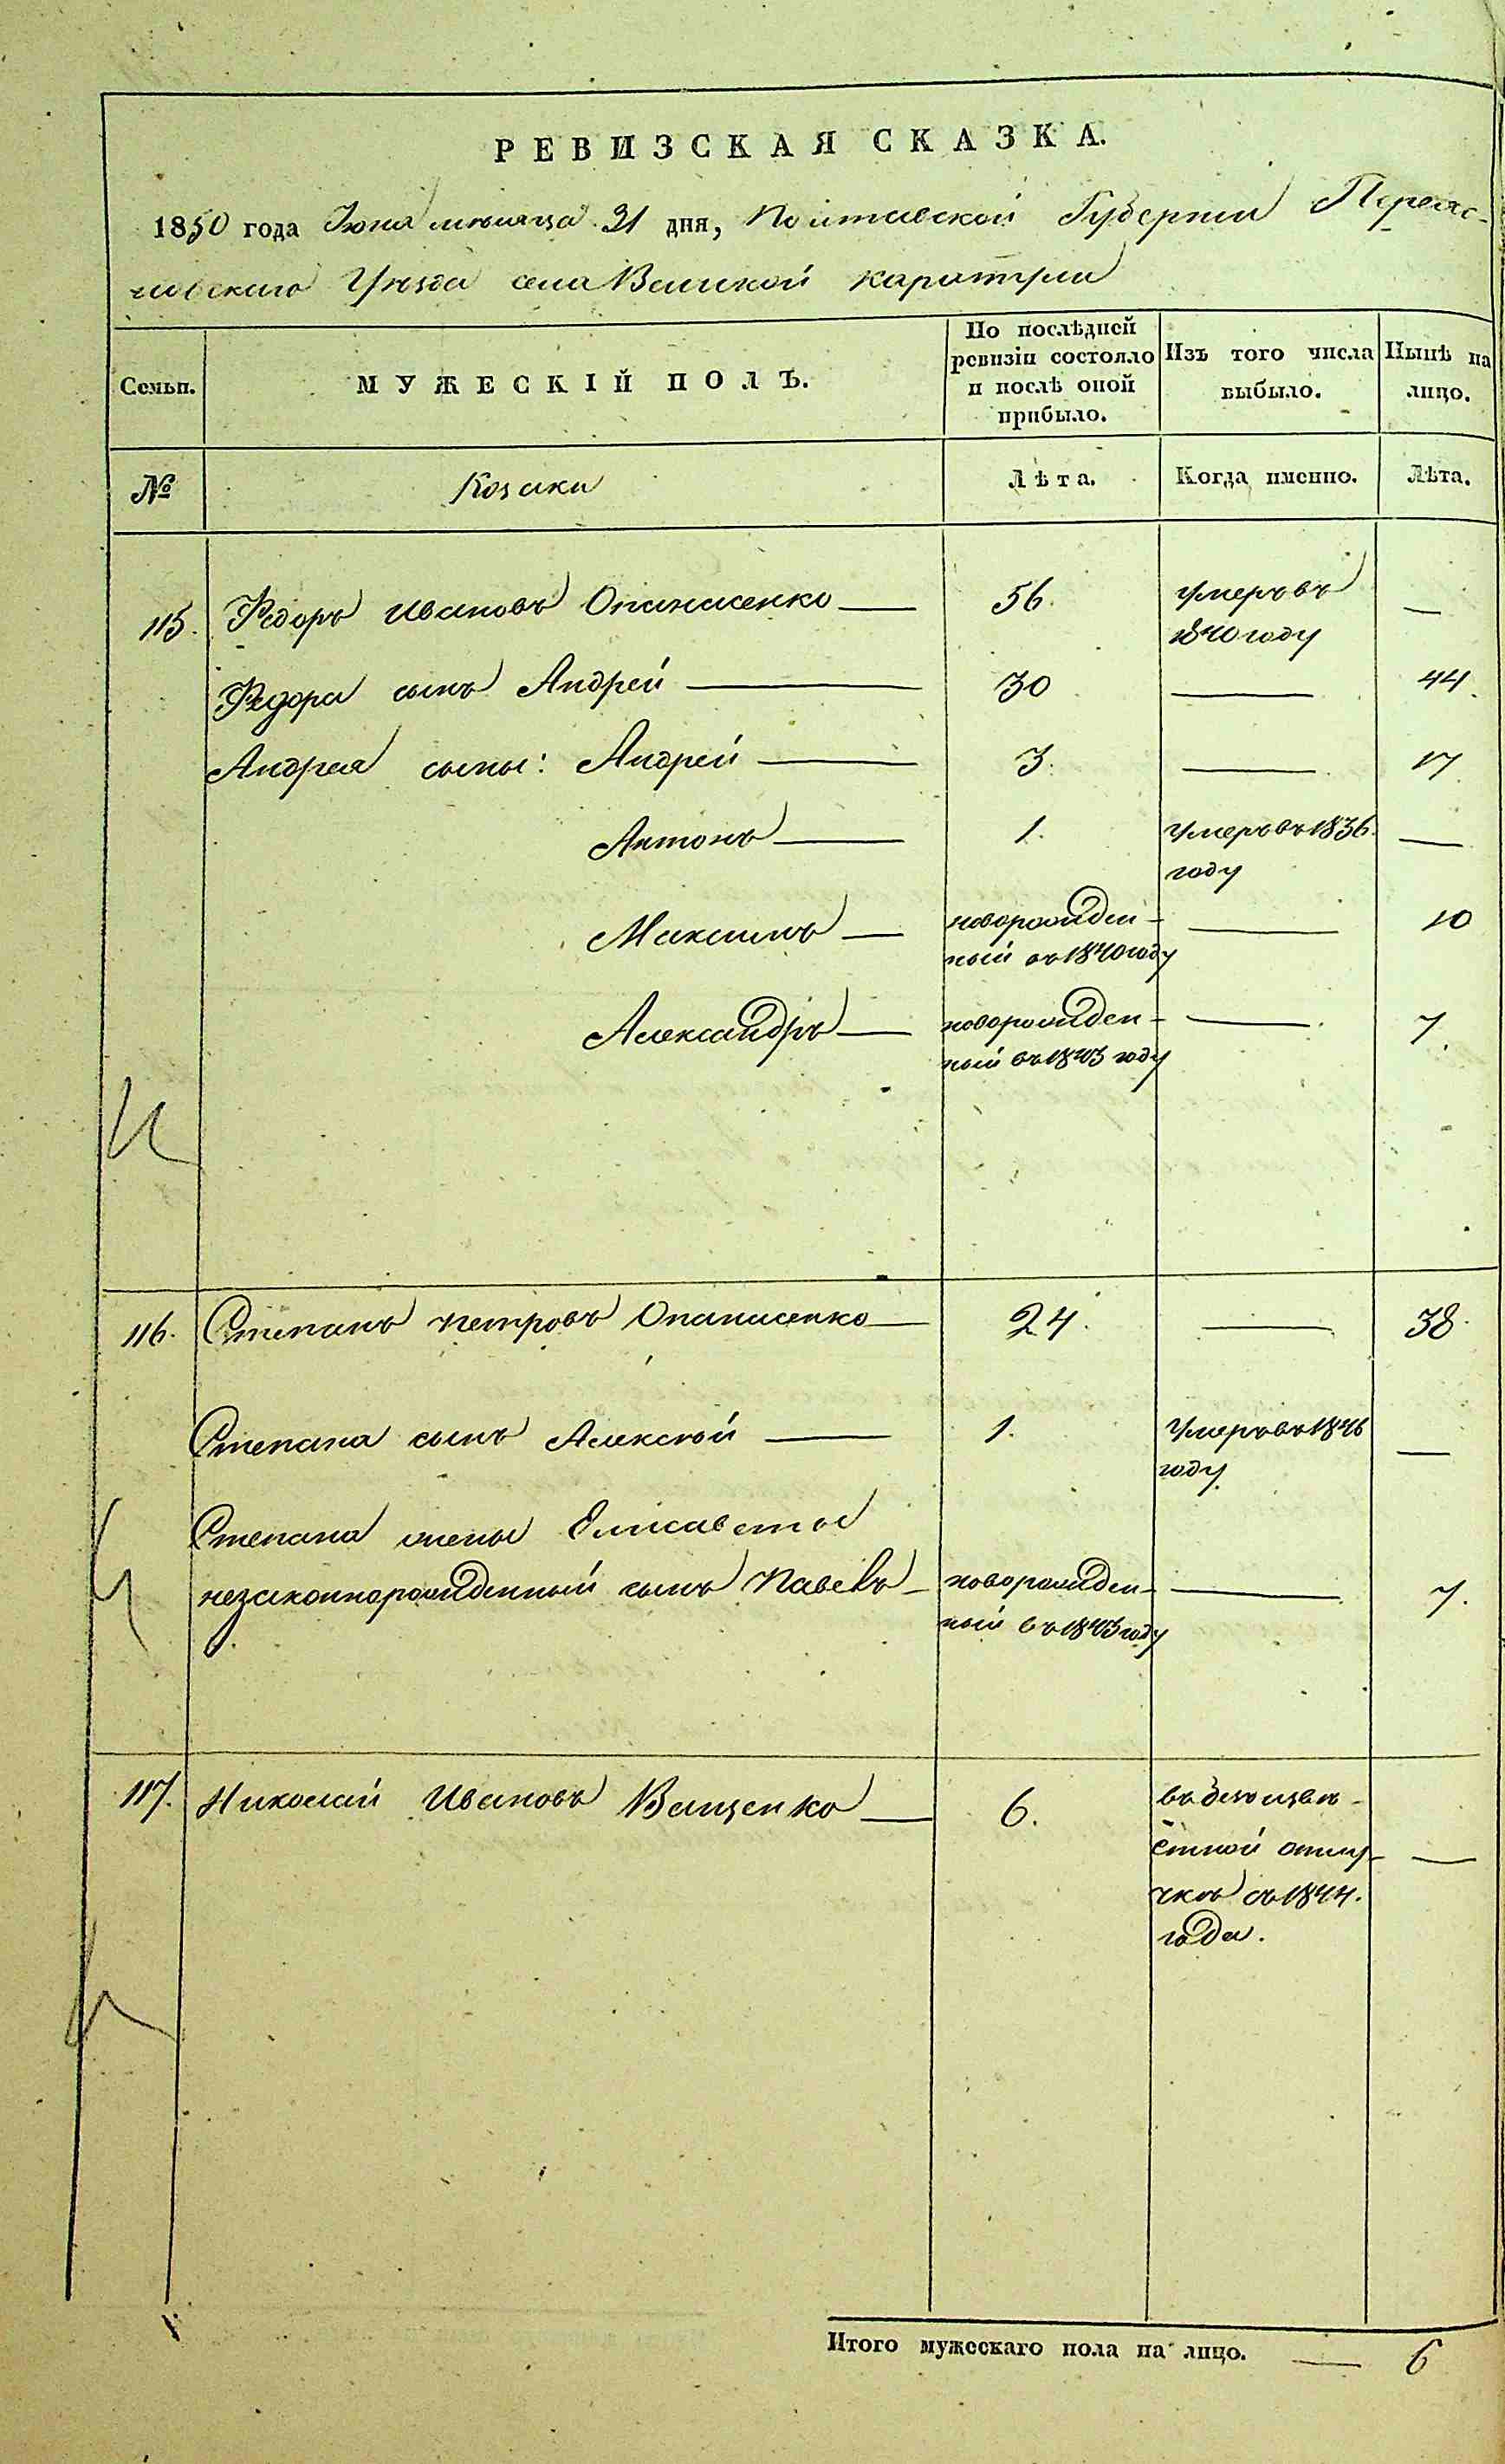 РЕВИЗСКАЯ СКАЗКА.
1850 года Іюня мѣсяца 21 дня, Полтавской Губерніи Переяс-
лавскаго Уѣзда села Великой каратули
Семьи.
МУЖЕСКІЙ ПОЛЪ.
По послѣдней ревизіи состояло и послѣ оной прибыло.
Изъ того числа выбыло.
Нынѣ на лицо.
№
Козаки
Лѣта.
Когда именно.
Лѣта.
115. Федоръ Ивановъ Опанасенко — 56. умеръ въ 1840 году —
Федора сынъ Андрей — 30 — 44.
Андрея сыны: Андрей — 3. — 17
Антонъ — 1. умеръ въ 1836. году —
Максимъ — новорожден-
ный въ 1840 году — 10
Александръ — новорожден-
ный въ 1843 году — 7.
116. Степанъ Петровъ Опанасенко — 24. — 38.
Степана сынъ Алексѣй — 1. умеръ въ 1846 году —
Степана жены Елисаветы
незаконнорожденный сынъ Павелъ — новорожден-
ный въ 1843 году — 7.
117. Николай Ивановъ Ващенко — 6. въ безъизвѣ-
стной отлу- —
чкѣ съ 1844.
года.
Итого мужескаго пола на лицо. — 6